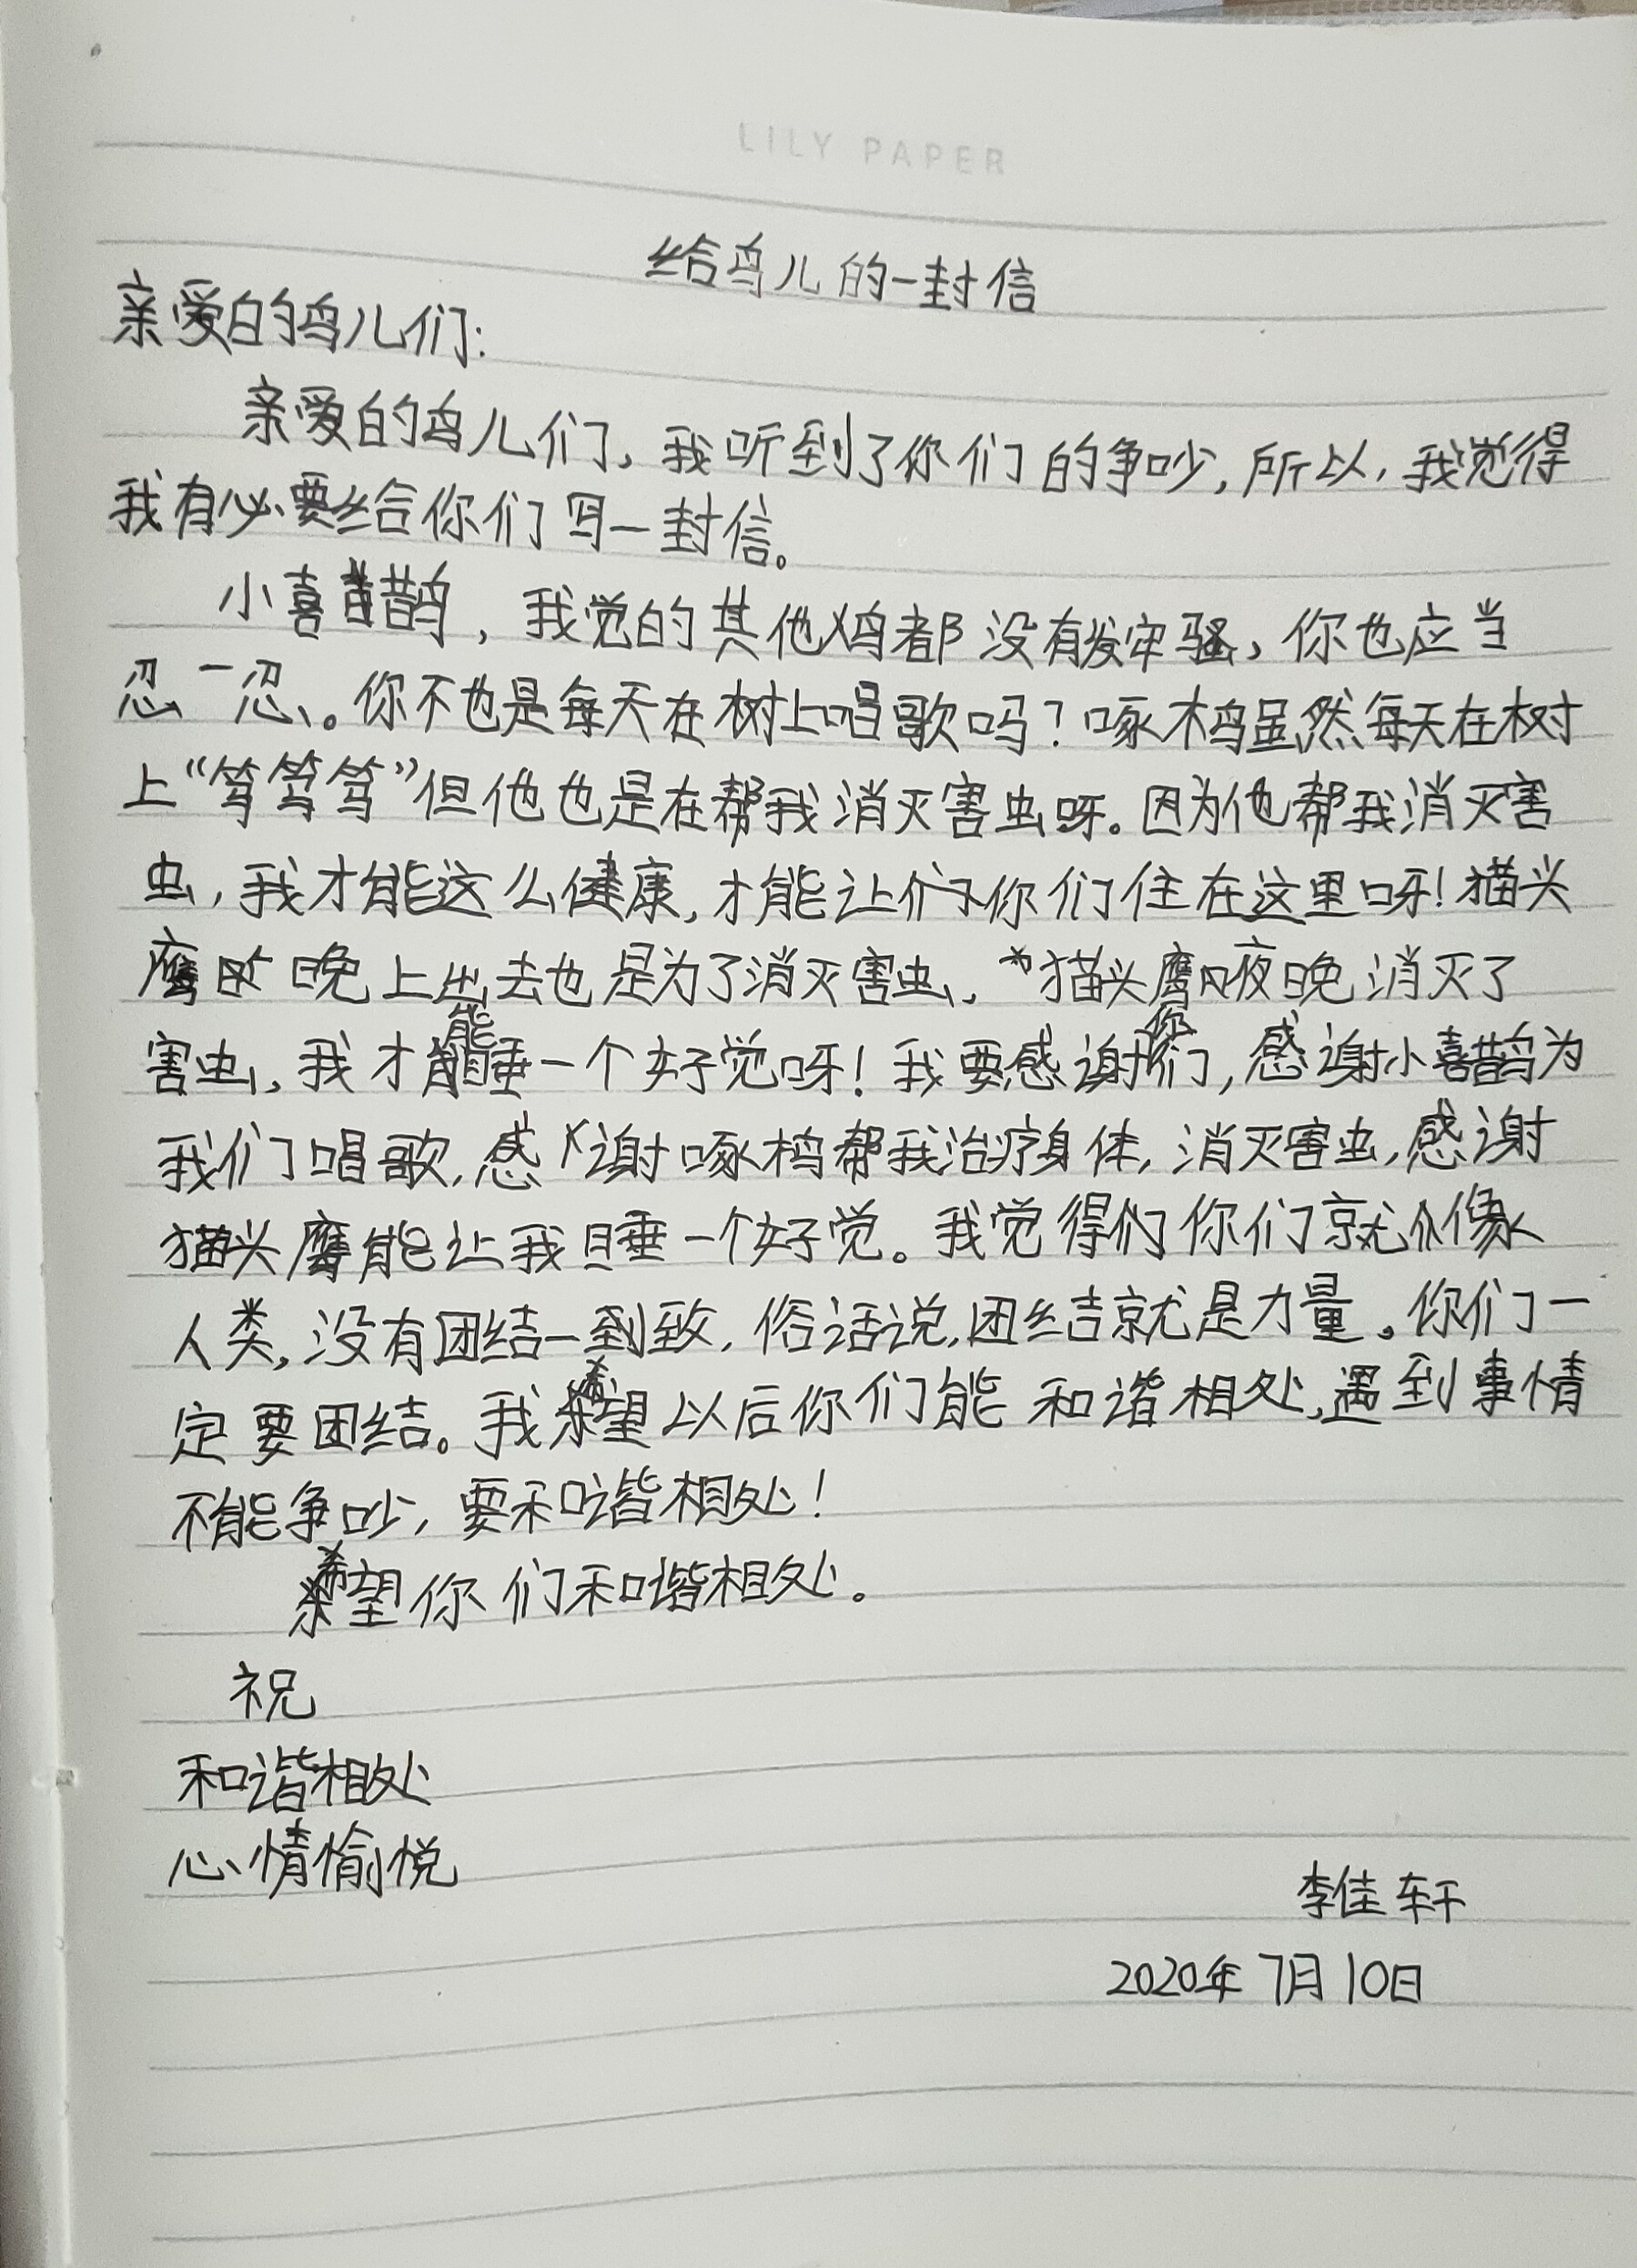 LILY PAPER
给鸟儿的一封信
亲爱的鸟儿们:
亲爱的鸟儿们,我听到了你们的争吵,所以,我觉得
我有必要给你们写一封信。
小喜鹊,我觉的其他鸟都没有发牢骚,你也应当
忍一忍。你不也是每天在树上唱歌吗?啄木鸟虽然每天在树
上“笃笃笃”但他也是在帮我消灭害虫呀。因为他帮我消灭害
虫,我才能这么健康,才能让你们住在这里呀!猫头
鹰晚上出去也是为了消灭害虫,猫头鹰夜晚消灭了
害虫,我才能睡一个好觉呀!我要感谢你们,感谢小喜鹊为
我们唱歌,感谢啄木鸟帮我治疗身体,消灭害虫,感谢
猫头鹰能让我睡一个好觉。我觉得你们就像
人类,没有团结一致,俗话说,团结就是力量。你们一
定要团结。我希望以后你们能和谐相处,遇到事情
不能争吵,要和谐相处!
希望你们和谐相处。
祝
和谐相处
心情愉悦
李佳轩
2020年7月10日